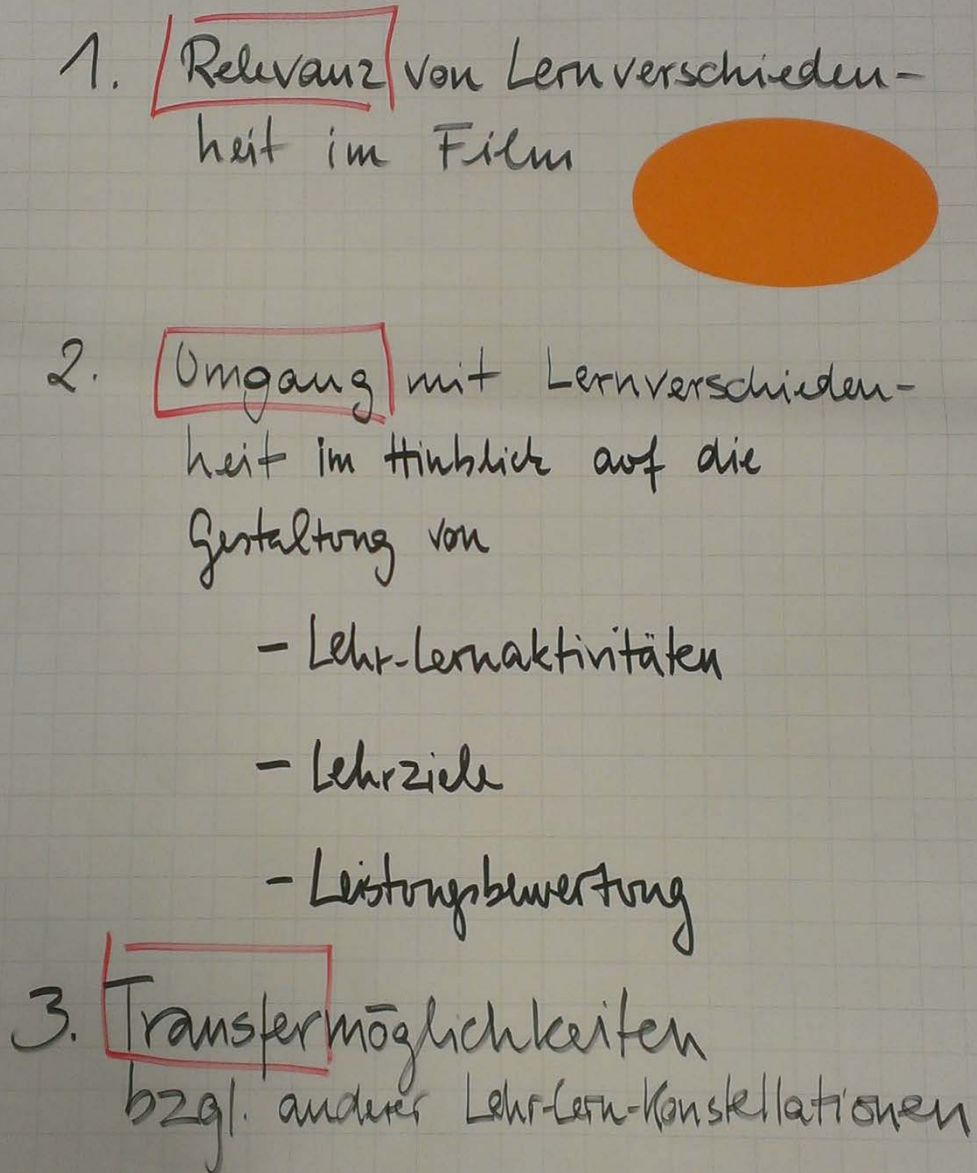 1. Relevanz von Lernverschieden-
heit im Film
2. Umgang mit Lernverschieden-
heit im Hinblick auf die
Gestaltung von
- Lehr-Lernaktivitäten
- Lehrziele
- Leistungsbewertung
3. Transfermöglichkeiten
bzgl. anderer Lehr-Lern-Konstellationen